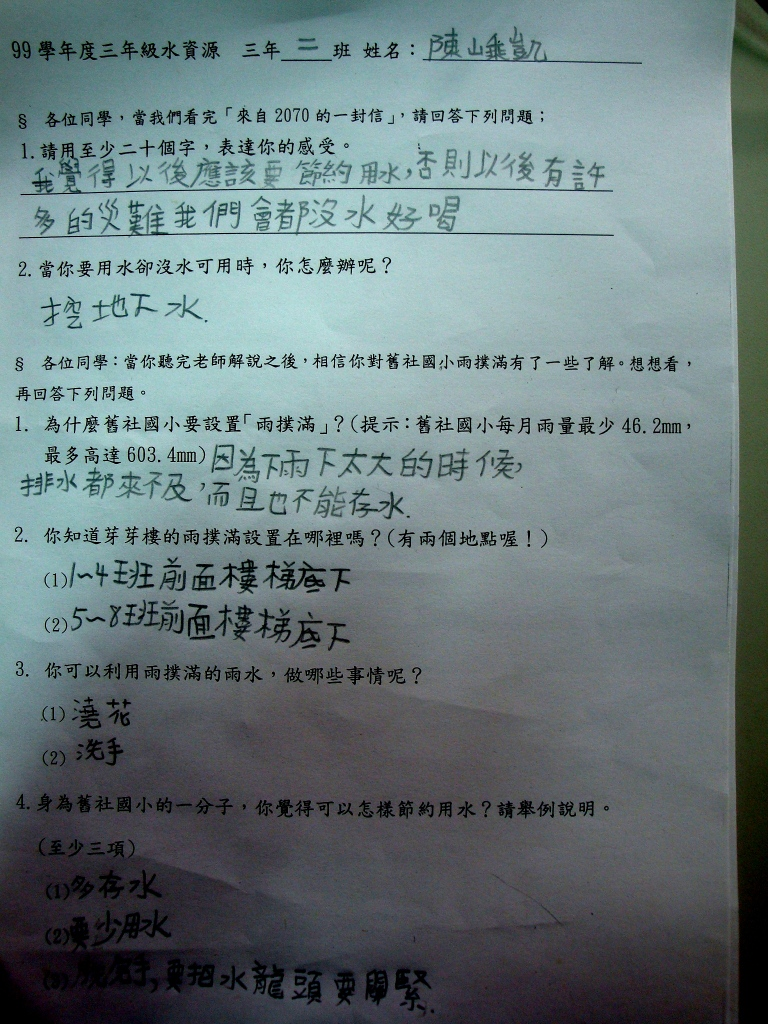 99 學年度三年級水資源 三年二班 姓名：陳
§ 各位同學，當我們看完「來自 2070 的一封信」，請回答下列問題；
1.請用至少二十個字，表達你的感受。
我覺得以後應該要節約用水,否則以後有許
多的災難我們會都沒水好喝
2.當你要用水卻沒水可用時，你怎麼辦呢？
挖地下水.
§ 各位同學：當你聽完老師解說之後，相信你對舊社國小雨撲滿有了一些了解。想想看，
再回答下列問題。
1. 為什麼舊社國小要設置「雨撲滿」？(提示：舊社國小每月雨量最少 46.2mm，
最多高達 603.4mm)因為下雨下太大的時候,
排水都來不及,而且也不能存水.
2. 你知道芽芽樓的雨撲滿設置在哪裡嗎？(有兩個地點喔！)
(1)1~4班前面樓梯底下
(2)5~8班前面樓梯底下
3. 你可以利用雨撲滿的雨水，做哪些事情呢？
(1)澆花
(2)洗手
4.身為舊社國小的一分子，你覺得可以怎樣節約用水？請舉例說明。
(至少三項)
(1)多存水
(2)要少用水
(3)手,要把水龍頭要關緊.